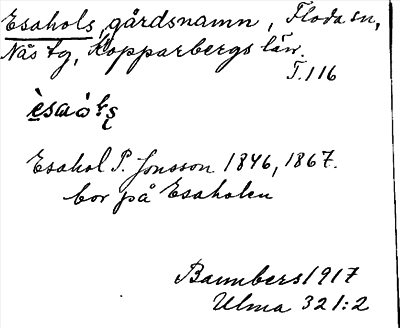 Esahols, gårdsnamn, Floda sn,
Nås tg, Kopparbergs län.
T. 116
Esahol P. Jonsson 1846, 1867.
bor på Esaholen
1917
Ulma 321:2